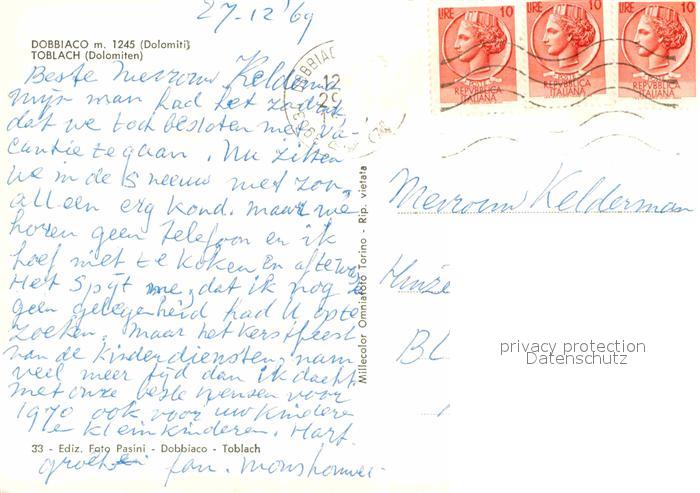 27-12'69
DOBBIACO m. 1245 (Dolomiti)
TOBLACH (Dolomiten)
Beste Mevrouw Kelderman
mijn man had het zo druk
dat we toch besloten met va-
cantie te gaan. Nu zitten
we in de sneeuw met zon,
alleen erg koud. maar we
horen geen telefoon en ik
hoef niet te koken en afte
Het spijt me, dat ik nog
geen gelegenheid had U opte
zoeken. Maar het kerstfeest
van de kinderdiensten, nam
veel meer tijd dan ik dacht
met onze beste wensen voor
1970 ook voor uw kinderen
en kleinkinderen. Hart.
groeten fam.
33 - Ediz. Foto Pasini - Dobbiaco - Toblach
Millecolor Omniafoto Torino - Rip. vietata
LIRE 10
POSTE
REPVBBLICA
ITALIANA
LIRE 10
POSTE
REPVBBLICA
ITALIANA
LIRE 10
POSTE
REPVBBLICA
ITALIANA
12
29
Mevrouw Kelderman
Huize
BL
privacy protection
Datenschutz